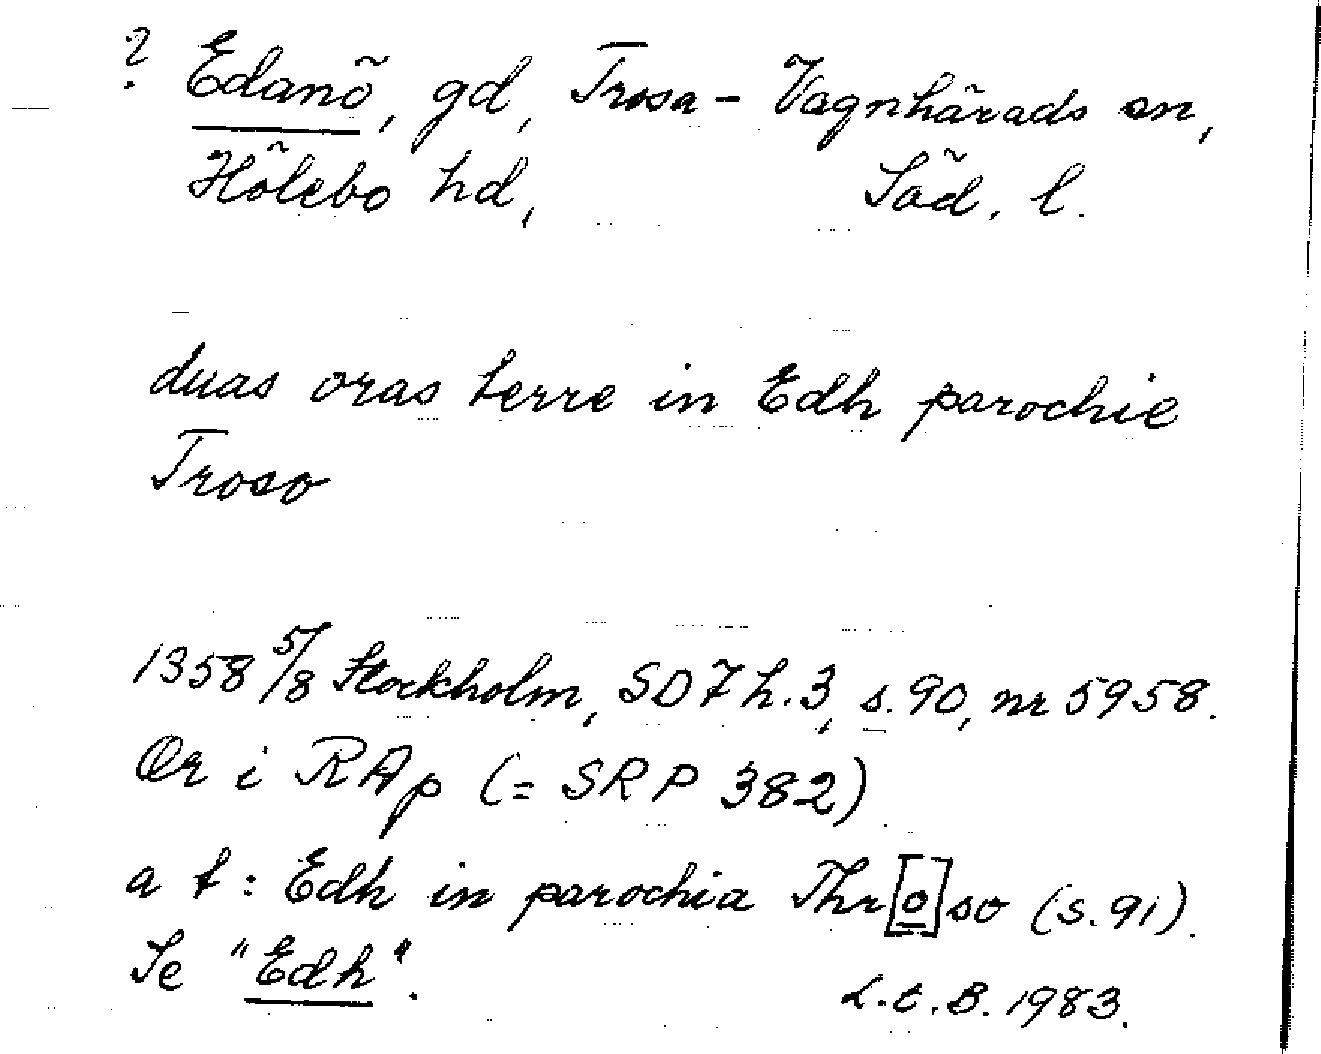 ? Edanö, gd, Trosa-Vagnhärads sn,
Hölebo hd, Söd. l.
duas oras terre in Edh parochie
Troso
1358 5/8 Stockholm, SD 7 h.3, s.90, nr 5958.
Or i RAp (= SRP 382)
a t: Edh in parochia Thr[o]so (s.91).
Se "Edh".
L.t.B. 1983.